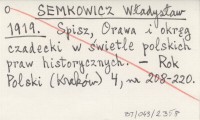 0 SEMKOWICZ Władysław
1919. Spisz, Orawa i okręg
czadecki w świetle polskich
praw historycznych. — Rok
Polski (Kraków) 4, na 208-220.